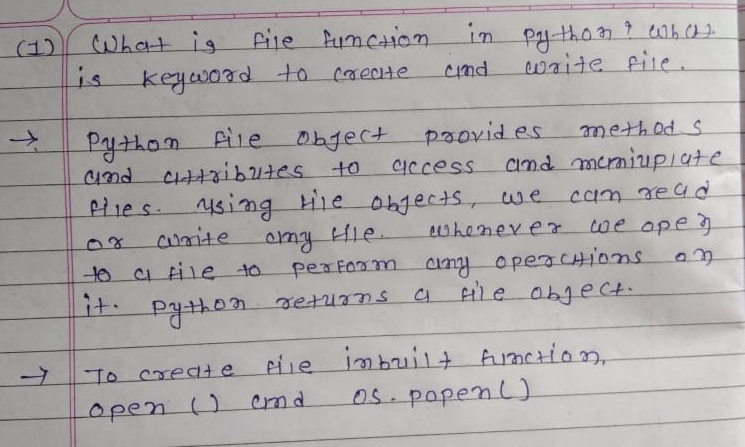 (1) What is file function in python? what
is keyword to create and write file.
→ Python file object provides methods
and attributes to access and maniuplate
files. using file objects, we can read
or write any file. whenever we open
to a file to perform any operations on
it. python returns a file object.
→ To create file inbuilt function,
open () and os. popen()